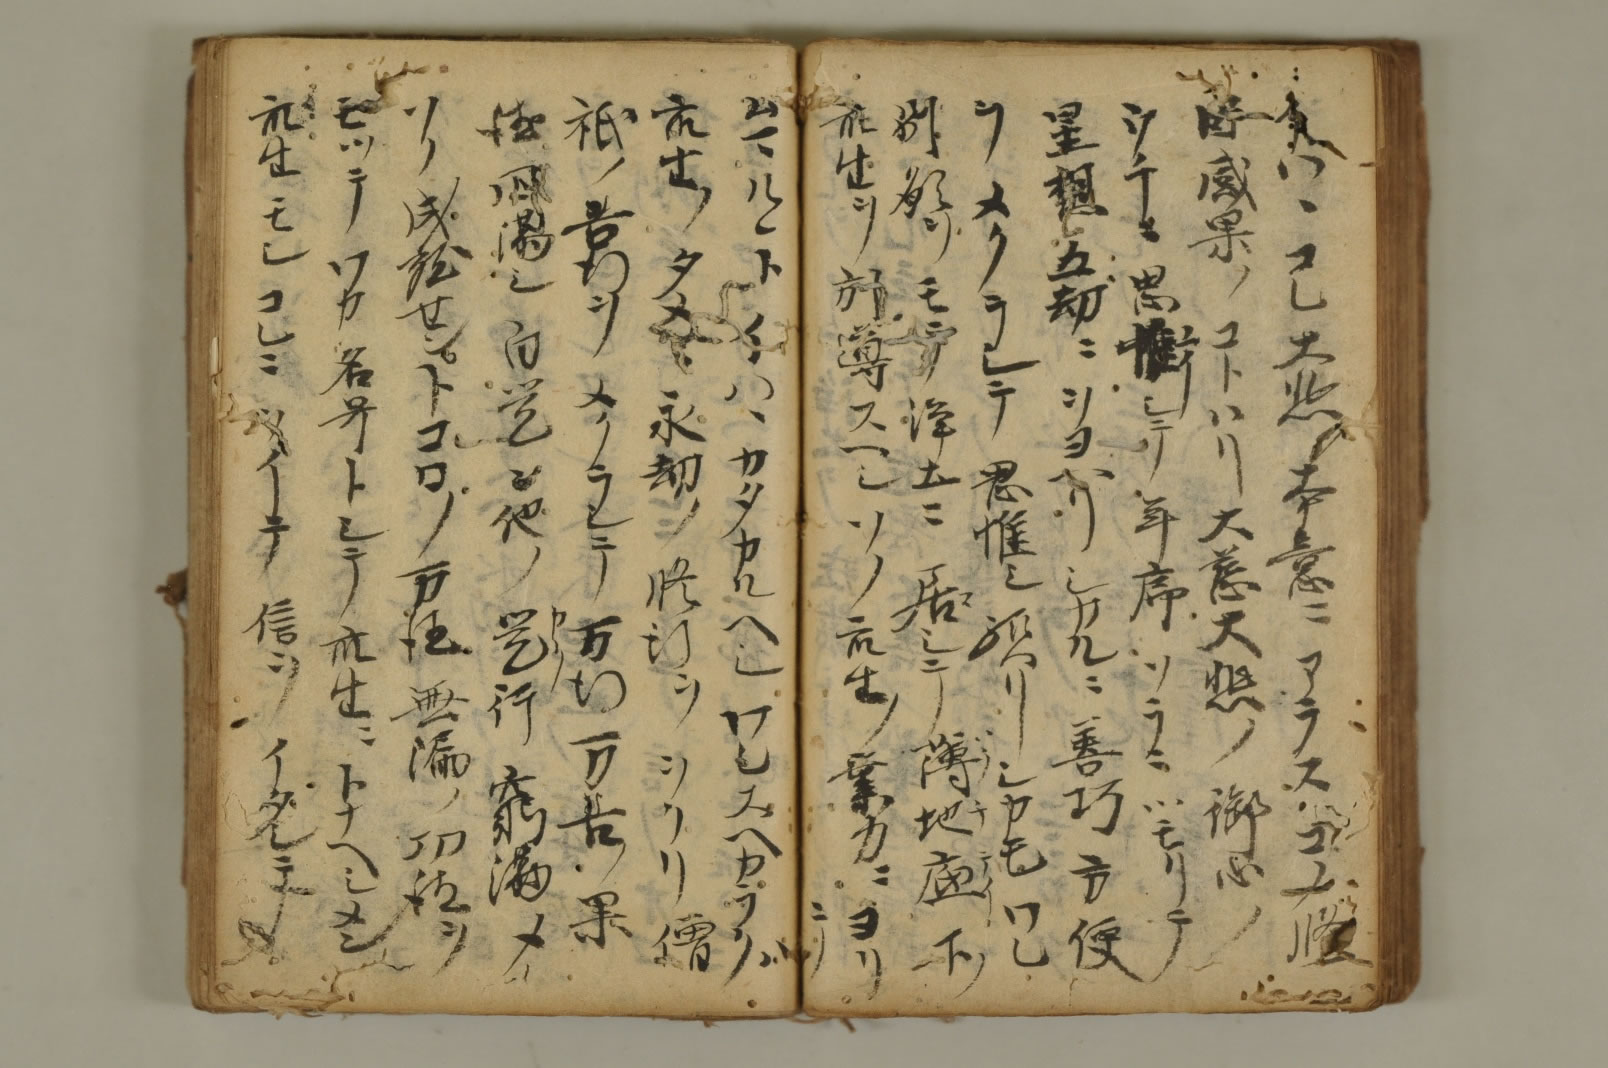 ハコレ大悲ノ本意ニアラス因ユヘ修
得感果ノコトハリ大慈大悲ノ御心ノ
ウチニ思惟シテ年序ソラニツモリテ
星霜五劫ニヲヨヘリシカルニ善巧方便
ヲメクラシテ思惟シ給ヘリシカモワレ
別願ヲモテ浄土ニ居シテ薄地底下ノ
衆生ヲ引導スヘシソノ衆生ノ業力ニヨリ
ムマルヽトイハヽカタカルヘシワレスヘカラク
衆生ノタメニ永劫ノ修行ヲヲクリ僧
祇ノ苦行ヲメクラシテ万行万善ノ果
徳円満シ自覚々他ノ覚行窮満メ
ソノ成就セントコロノ万徳無漏ノ功徳ヲ
モツテワカ名号トシテ衆生ニトナヘシメン
衆生モシコレニヲイテ信ヲイタシテ